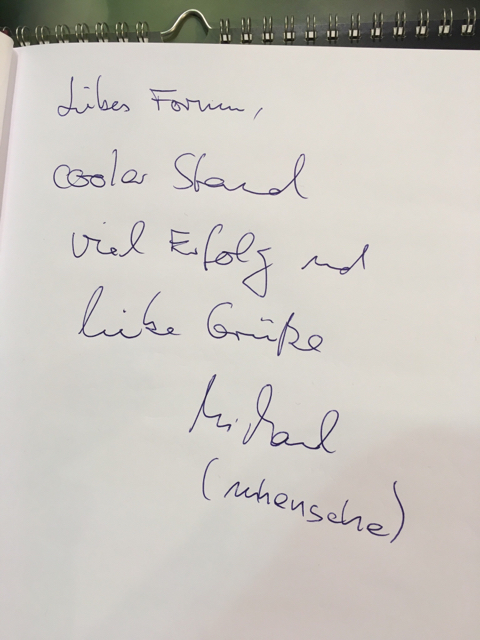 Liebes Forum,
cooler Stand
viel Erfolg und
liebe Grüße
Michael
(